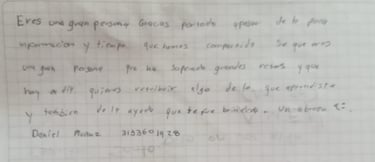 Eres una gran persona Gracias por todo apesar de lo poco
informacion y tiempo que hemos compartido Se que eres
una gran persona que ha superado grandes retos y que
hoy a dia quieres retribuir algo de lo que aprendiste
y tambien de la ayuda que te fue brindada. Un abrazo
Daniel Muñoz